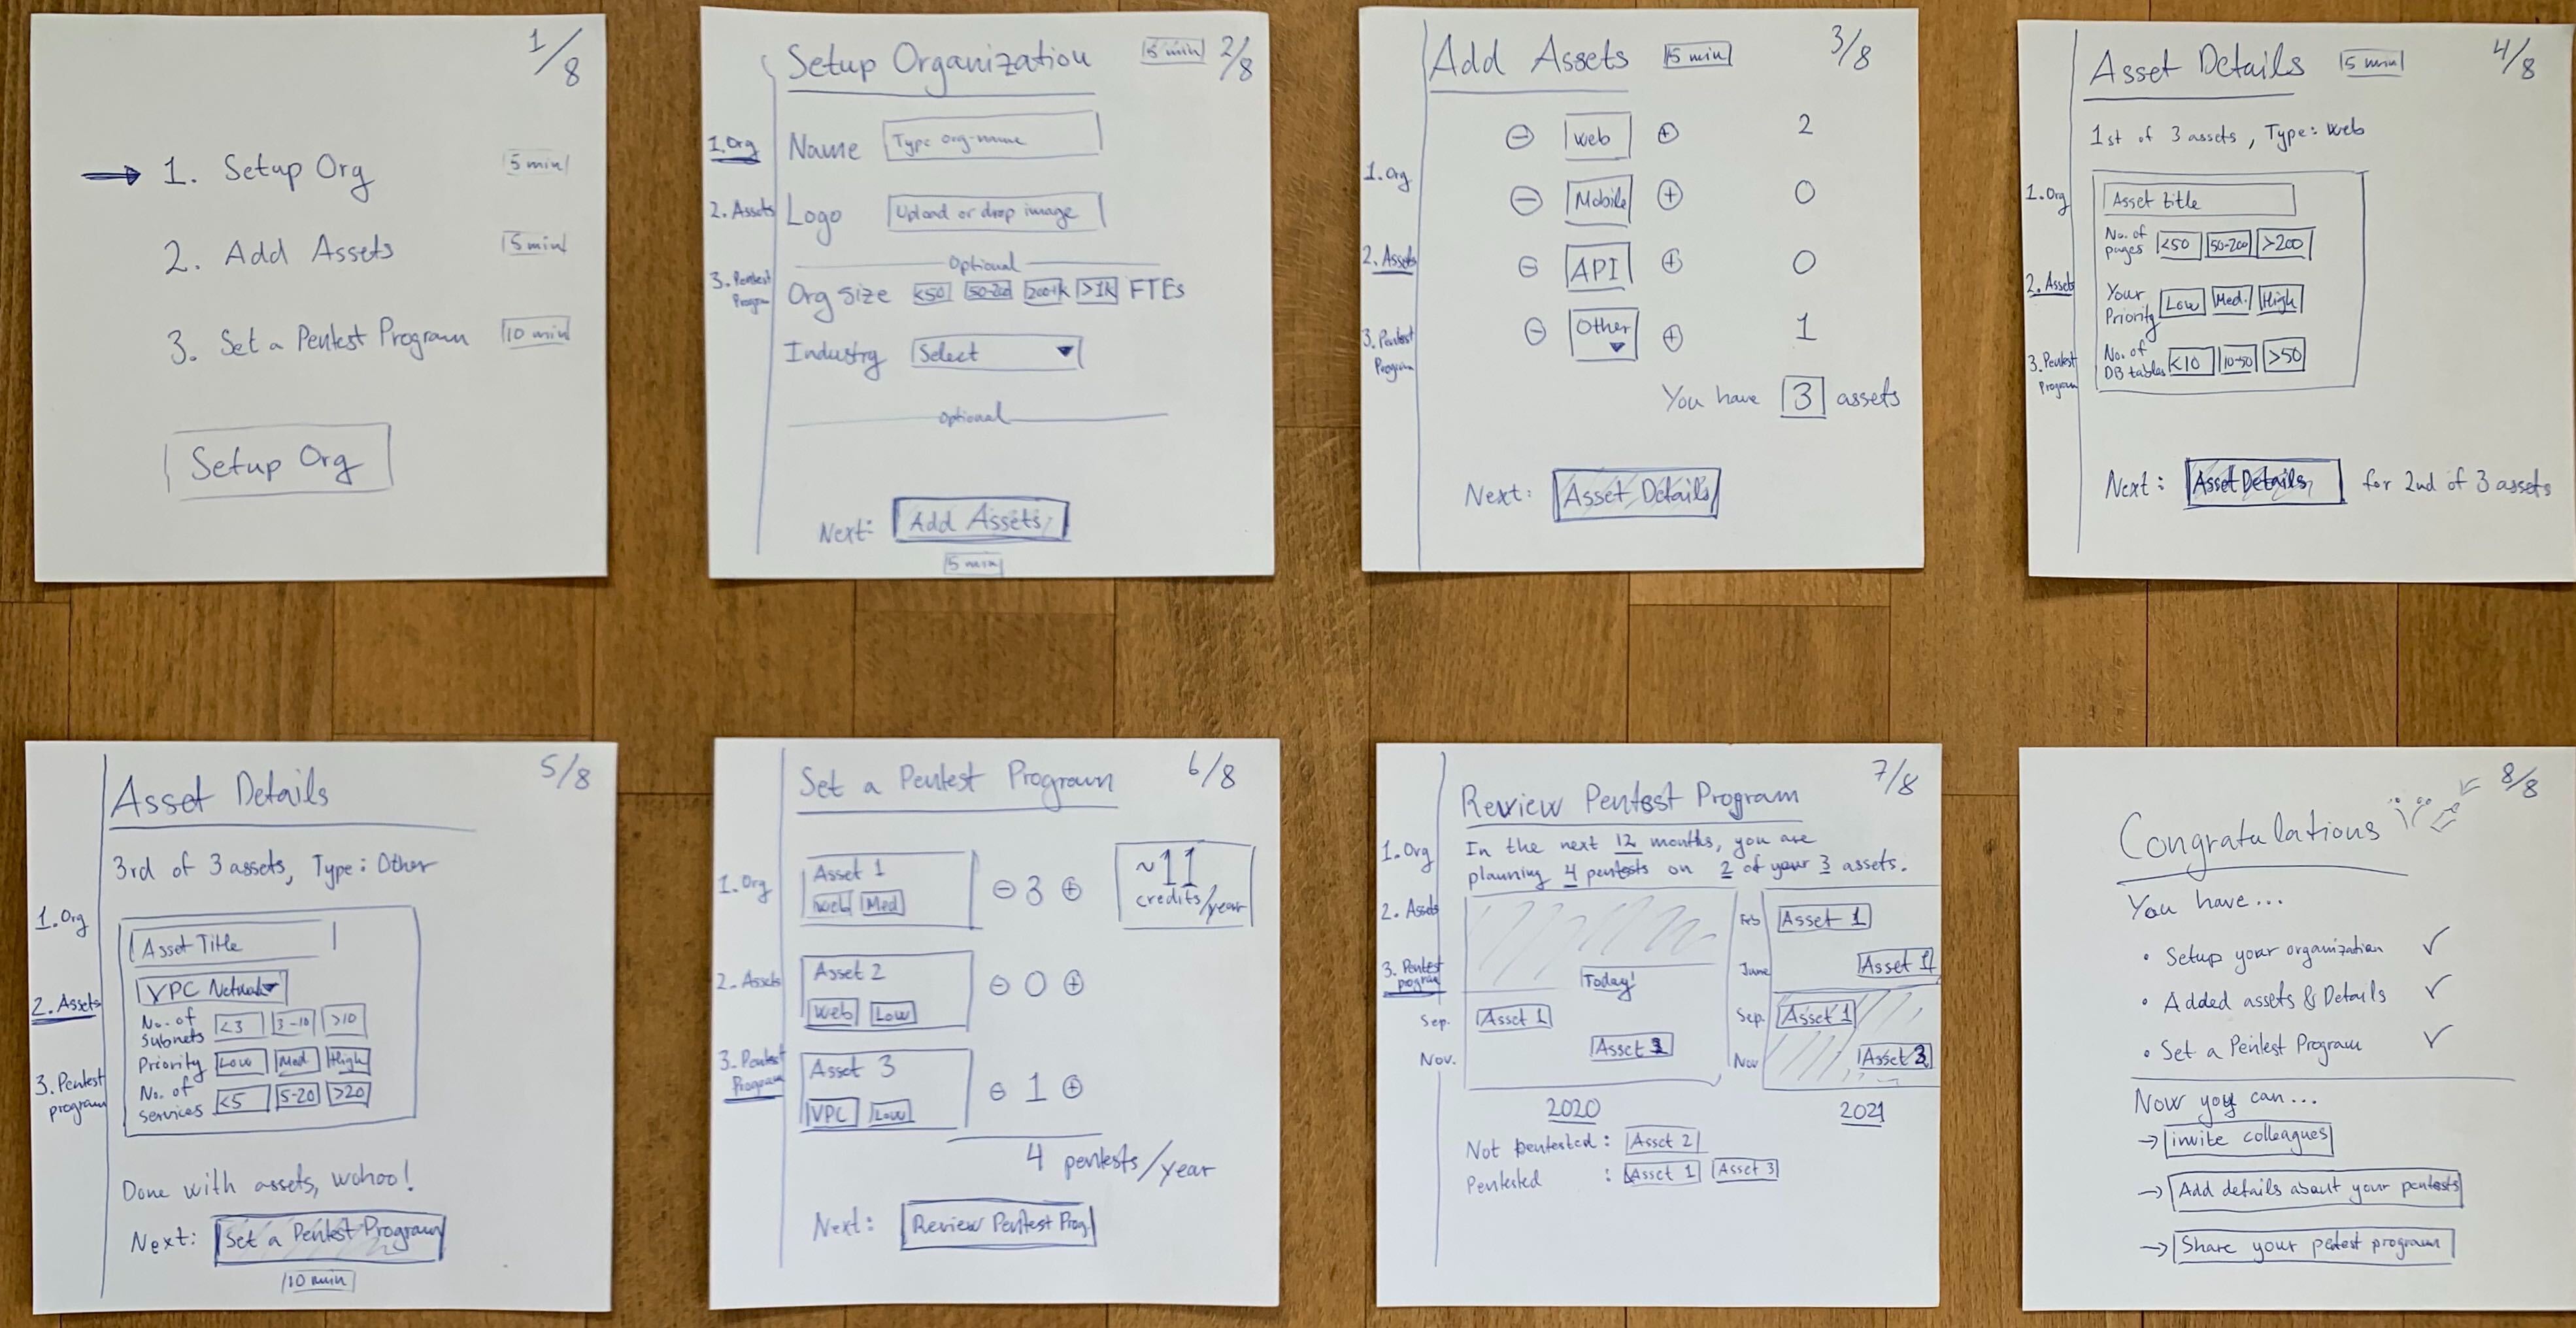 1/8
→ 1. Setup Org 5 min
2. Add Assets 5 min
3. Set a Pentest Program 10 min
Setup Org
Setup Organization 5 min 2/8
1. Org
2. Assets
3. Pentest Program
Name Type org-name
Logo Upload or drop image
Optional
Org size <50 50-200 200-1k >1k FTEs
Industry Select
Optional
Next: Add Assets
5 min
Add Assets 5 min 3/8
1. Org
2. Assets
3. Pentest Program
⊖ Web ⊕ 2
⊖ Mobile ⊕ 0
⊖ API ⊕ 0
⊖ Other ⊕ 1
You have 3 assets
Next: Asset Details
Asset Details 5 min 4/8
1st of 3 assets, Type: Web
1. Org
2. Assets
3. Pentest Program
Asset title
No. of pages <50 50-200 >200
Your Priority Low Med. High
No. of DB tables <10 10-50 >50
Next: Asset Details for 2nd of 3 assets
Asset Details 5/8
3rd of 3 assets, Type: Other
1. Org
2. Assets
3. Pentest program
Asset Title
VPC Network
No. of subnets <3 3-10 >10
Priority Low Med High
No. of services <5 5-20 >20
Done with assets, wohoo!
Next: Set a Pentest Program
10 min
Set a Pentest Program 6/8
1. Org
2. Assets
3. Pentest Program
Asset 1
Web Med
⊖ 3 ⊕
~11
credits/year
Asset 2
Web Low
⊖ 0 ⊕
Asset 3
VPC Low
⊖ 1 ⊕
4 pentests/year
Next: Review Pentest Prog.
Review Pentest Program 7/8
1. Org
2. Assets
3. Pentest program
In the next 12 months, you are
planning 4 pentests on 2 of your 3 assets.
Today!
Sep. Asset 1
Nov. Asset 3
2020
Feb Asset 1
June Asset 1
Sep. Asset 1
Nov Asset 3
2021
Not pentested: Asset 2
Pentested : Asset 1 Asset 3
Congratulations 8/8
You have...
• Setup your organization ✓
• Added assets & Details ✓
• Set a Pentest Program ✓
Now you can...
→ invite colleagues
→ Add details about your pentests
→ Share your pentest program